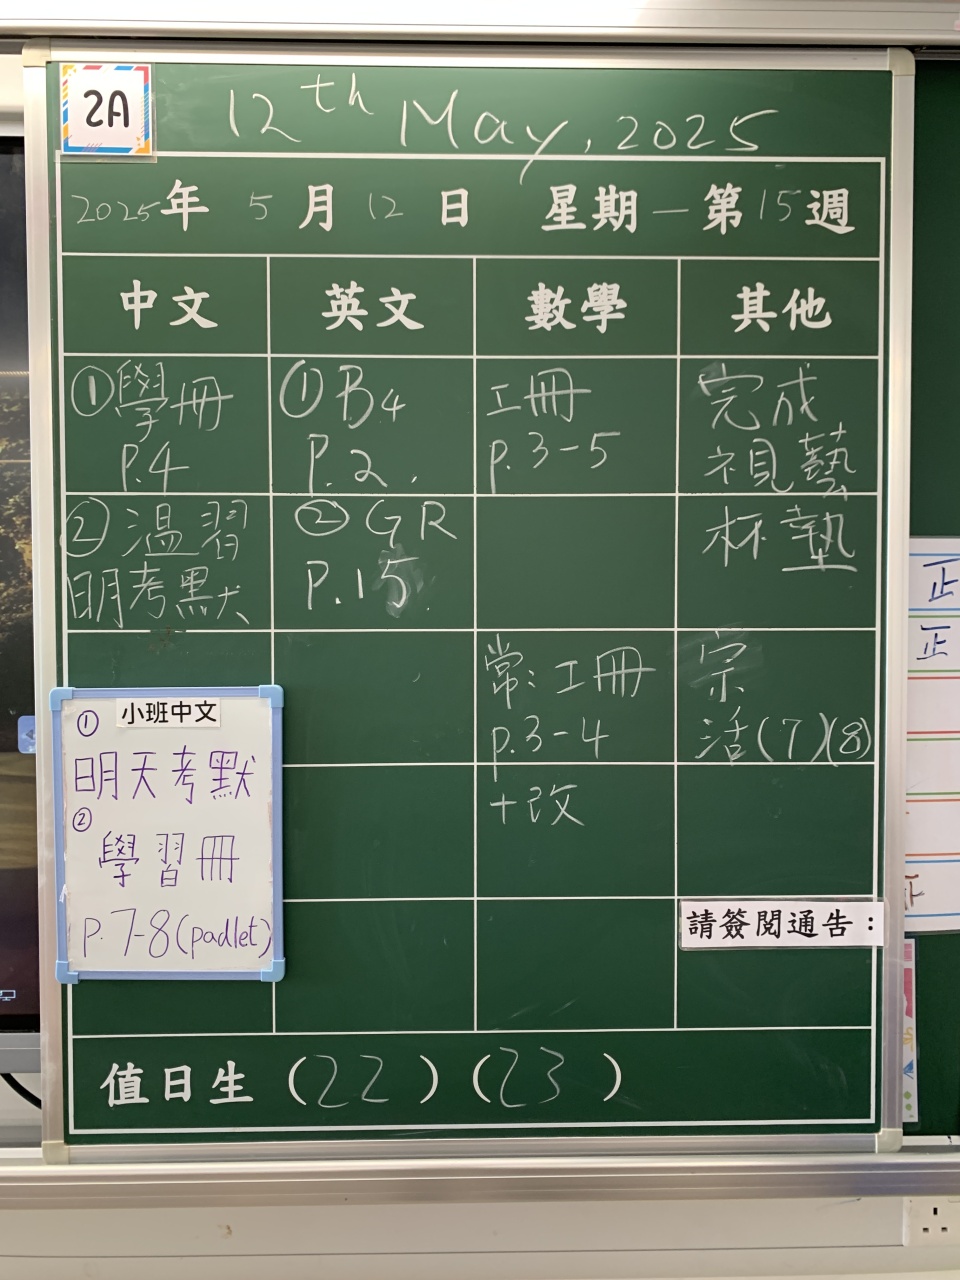 2A
12th May, 2025
2025年 5 月 12 日 星期一第15週
中文 英文 數學 其他
①學冊
p.4
②溫習
明考默
①B4
P.2.
②GR
P.15.
工冊
p.3-5
完成
視藝
杯墊
常:工冊
p.3-4
+改
宗
活(7)(8)
①
小班中文
明天考默
②
學習冊
p.7-8(padlet)
請簽閱通告：
值日生(22)(23)
正
正